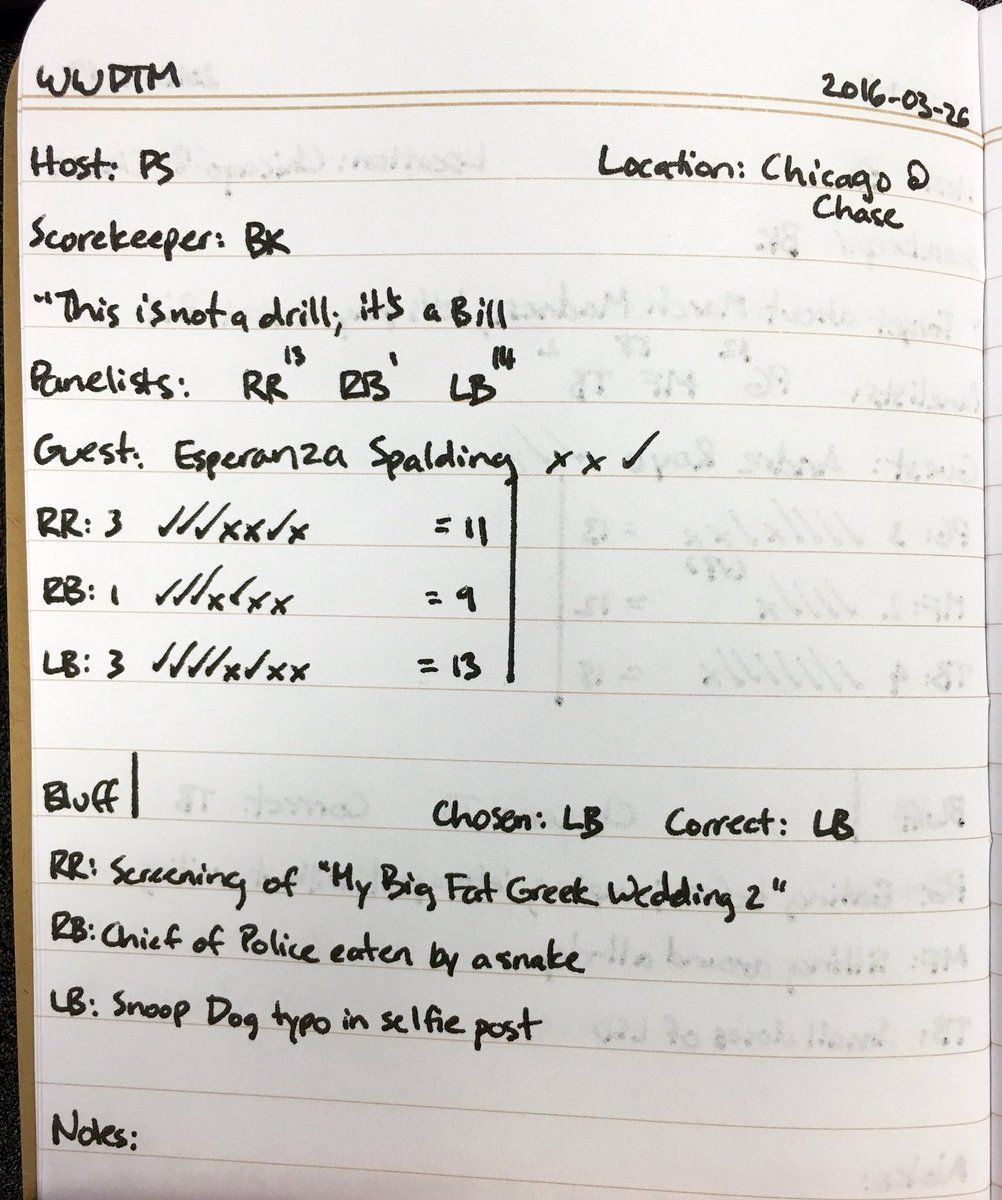 WWDTM 2016-03-26
Host: PS Location: Chicago @
Chase
Scorekeeper: BK
"This is not a drill; it's a Bill
Panelists: RR 13 RB 1 LB 14
Guest: Esperanza Spalding x x ✓
RR: 3 ✓✓✓xx✓x = 11
RB: 1 ✓✓✓x✓xx = 9
LB: 3 ✓✓✓✓x✓xx = 13
Bluff Chosen: LB Correct: LB
RR: Screening of "My Big Fat Greek Wedding 2"
RB: Chief of Police eaten by a snake
LB: Snoop Dog typo in selfie post
Notes: